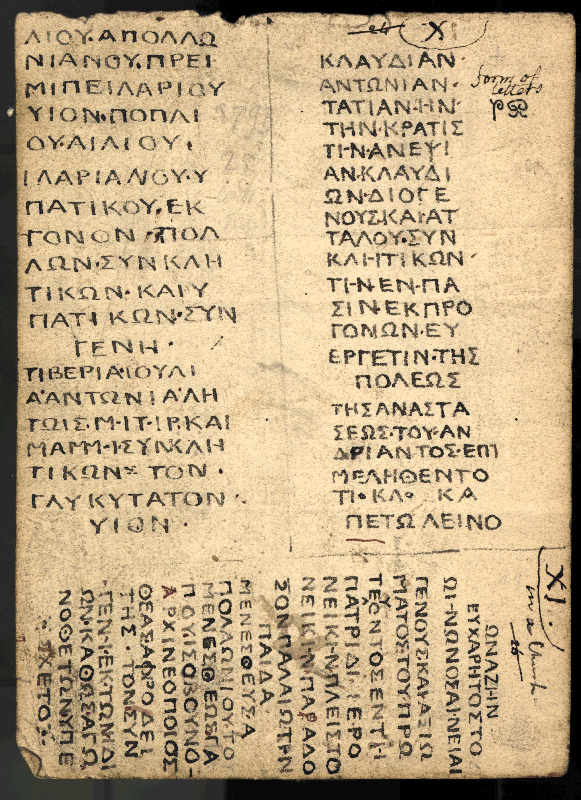 ΛΙΟΥ·ΑΠΟΛΛΩ
ΝΙΑΝΟΥ·ΠΡΕΙ
ΜΙΠΕΙΛΑΡΙΟΥ
ΥΙΟΝ·ΠΟΠΛΙ
ΟΥ·ΑΙΛΙΟΥ·
ΙΛΑΡΙΑΝΟΥ·Υ
ΠΑΤΙΚΟΥ·ΕΚ
ΓΟΝΟΝ·ΠΟΛ
ΛΩΝ·ΣΥΝΚΛΗ
ΤΙΚΩΝ·ΚΑΙΥ
ΠΑΤΙΚΩΝ·ΣΥΝ
ΓΕΝΗ·
ΤΙΒΕΡΙΑ·ΙΟΥΛΙ
Α·ΑΝΤΩΝΙΑ·ΛΗ
ΤΩΙΣ·Μ·ΙΤ·ΙΡ·ΚΑΙ
ΜΑΜΜ·ΙΣΥΝΚΛΗ
ΤΙΚΩΝ ΤΟΝ·
ΓΛΥΚΥΤΑΤΟΝ·
ΥΙΟΝ·
XI
form of letters
ΚΛΑΥΔΙΑΝ·
ΑΝΤΩΝΙΑΝ·
ΤΑΤΙΑΝ·ΗΝ·
ΤΗΝ·ΚΡΑΤΙΣ
ΤΙ·Ν·ΑΝΕΨΙ
ΑΝ·ΚΛΑΥΔΙ
ΩΝ·ΔΙΟΓΕ
ΝΟΥΣ·ΚΑΙ·ΑΤ
ΤΑΛΟΥ·ΣΥΝ
ΚΛΙ·ΙΤΙΚΩΝ·
ΤΙ·Ν·ΕΝ·ΠΑ
ΣΙΝ·ΕΚΠΡΟ
ΓΟΝΩΝ·ΕΥ
ΕΡΓΕΤΙΝ·ΤΗΣ
ΠΟΛΕΩΣ
ΤΗΣΑΝΑΣΤΑ
ΣΕΩΣ·ΤΟΥ·ΑΝ
ΔΡΙΑΝΤΟΣ·ΕΠΙ
ΜΕΛΗΘΕΝΤΟ
ΤΙ·ΚΛ· ΚΑ
ΠΕΤΩΛΕΙΝΟ
XI.
in a Church
ΩΝΑΖΗΝ
ΕΥΧΑΡΗΤΟΣΤΟ
ΩΙ-ΝΩΝΟΣΑΙΝΕΙΑΙ
ΓΕΝΟΥΣΚΑΙΑΞΙΩ
ΜΑΤΟΣΤΟΥΠΡΩ
ΤΕΥΟΝΤΟΣΕΝΤΗ
ΠΑΤΡΙΔΙ·ΙΕΡΟ
ΝΕΙΚΙ-ΝΠΛΕΙΣΤΟ
ΝΕΙΚΙ-ΝΠΑΡΑΔΟ
ΞΟΝΠΑΛΑΙΩΤΗΝ
ΠΑΙΔΑ
ΜΕΝΕΣΘΕΥΣΑ
ΠΟΛΛΩΝΙΟΥΤΟ
ΜΕΝΕΣΘΕΩΣΓΑ
ΠΟΥΣΟΒΟΥΝΟ-
ΑΡΧΙΝΕΟΠΟΙΟΣ
ΘΕΑΣΑΦΡΟΔΕΙ
ΤΗΣ·ΤΟΝΣΥΝ
ΓΕΝΙ-ΕΚΤΩΝΙΔΙ
ΩΝ·ΚΑΘΩΣΑΓΩ
ΝΟΘΕΤΩΝΥΠΕ
ΣΧΕΤΟ